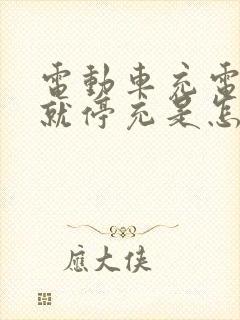 電動車充電
就停充是怎
應大俠